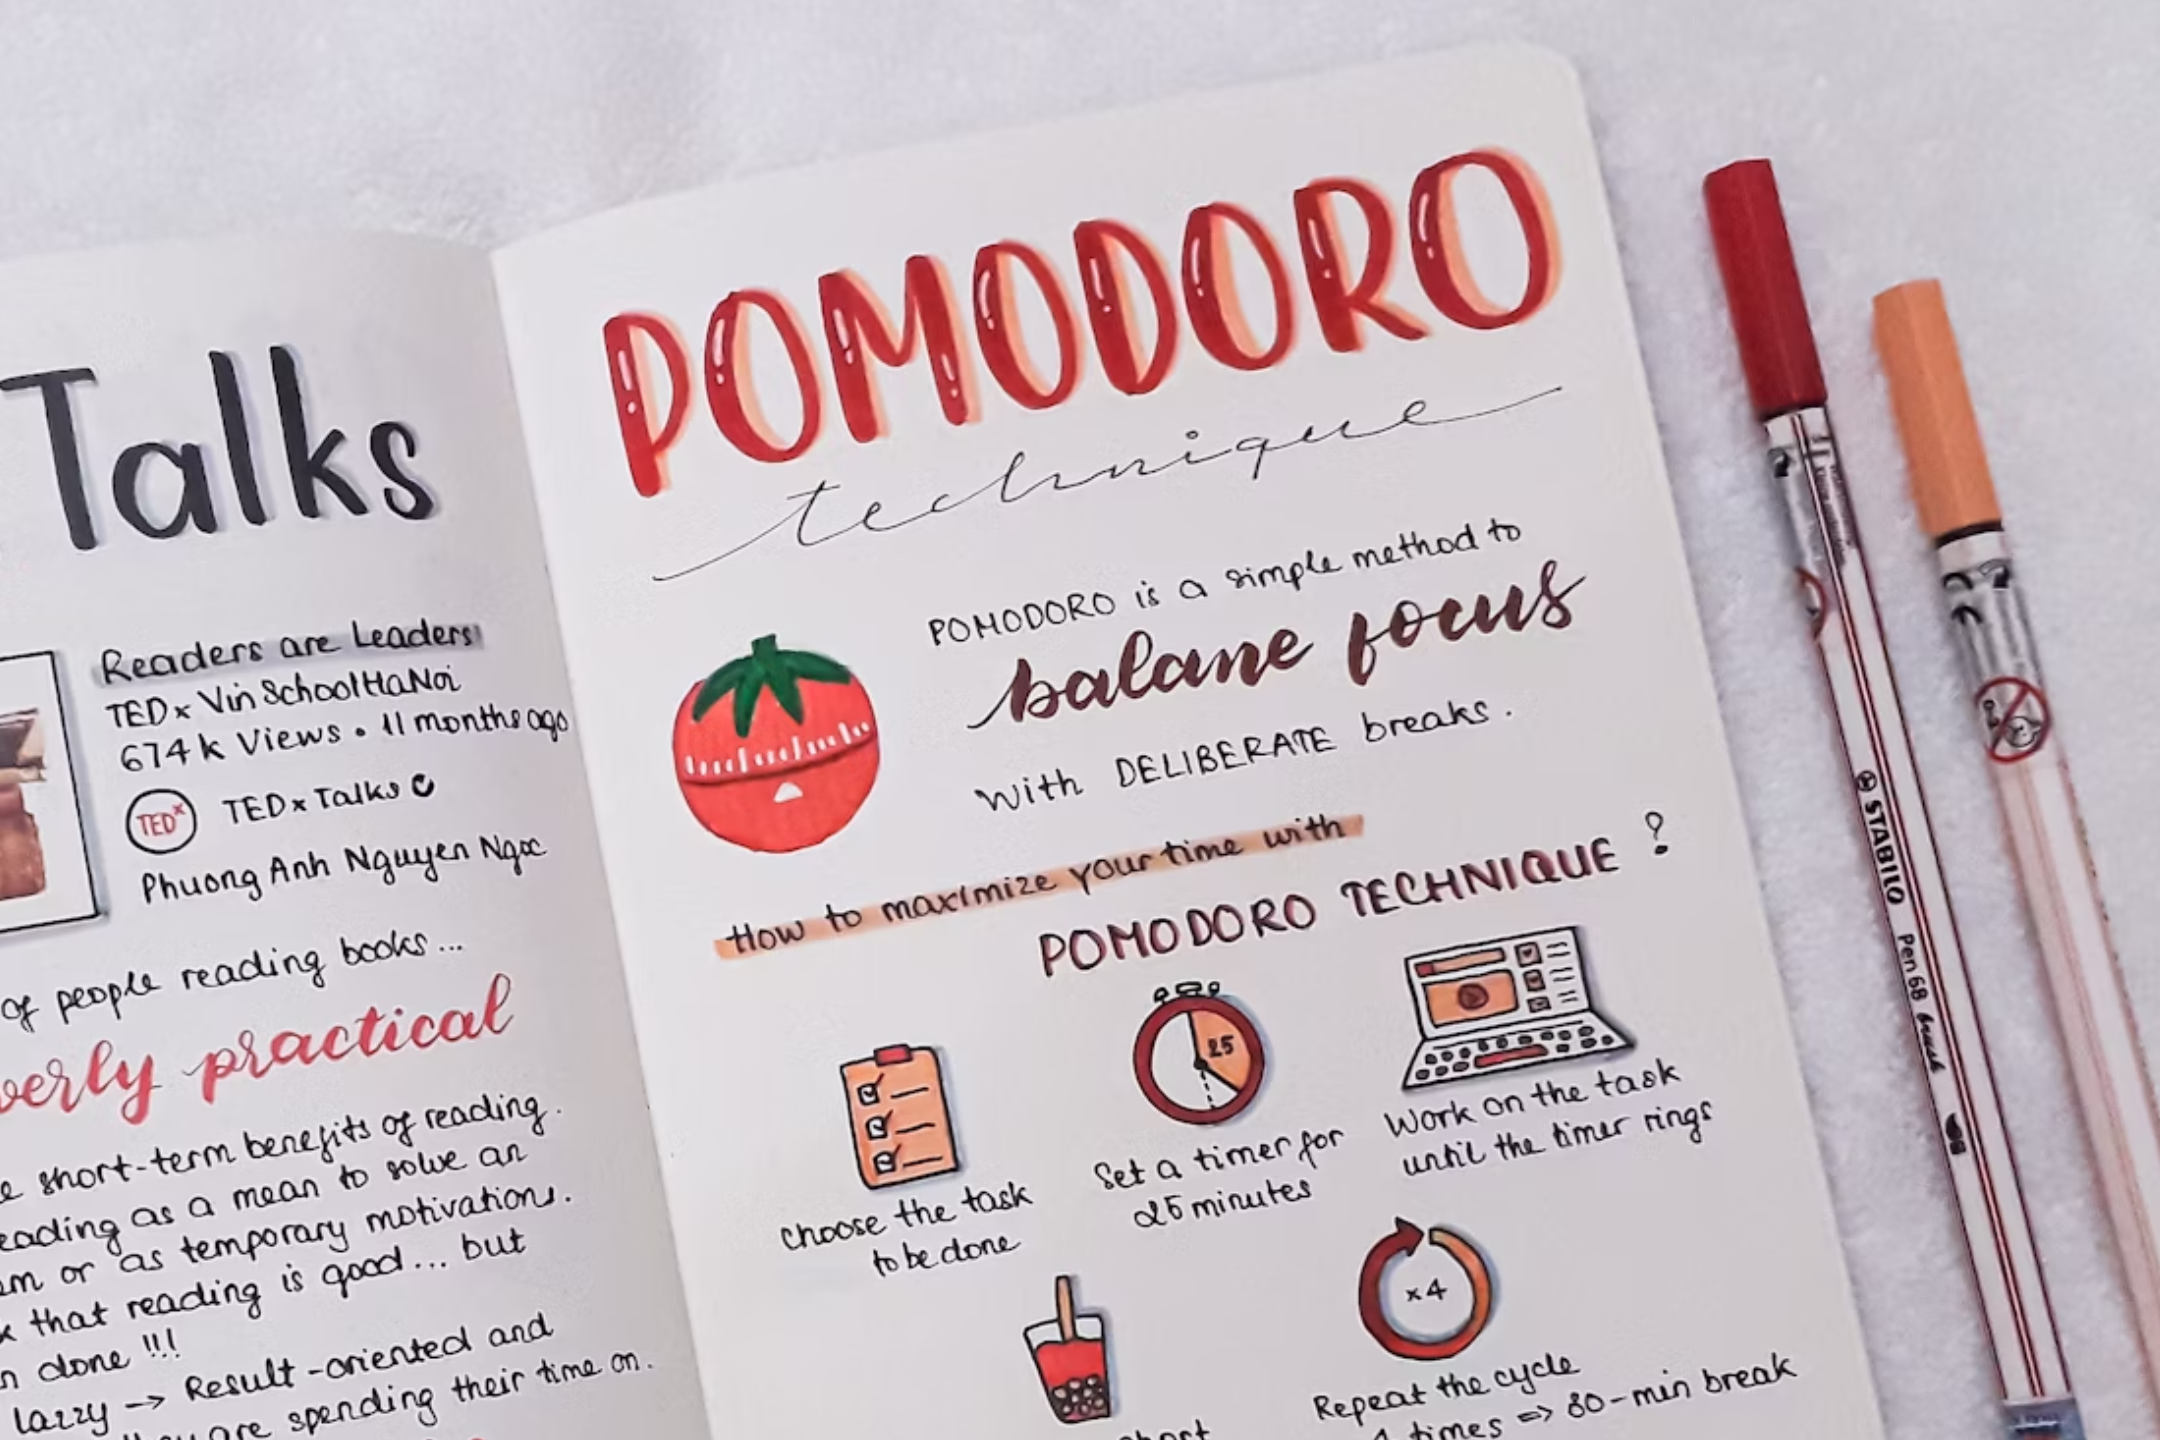 Talks
Readers are Leaders
TEDx VinSchoolHaNoi
674k Views • 11 months ago
TEDx
TEDx Talks
Phuong Anh Nguyen Ngoc
of people reading books...
verly practical
short-term benefits of reading.
eading as a mean to solve an
or as temporary motivation.
that reading is good... but
done !!!
lazzy → Result-oriented and
are spending their time on.
POMODORO
technique
POMODORO is a simple method to
balane focus
with DELIBERATE breaks.
How to maximize your time with
POMODORO TECHNIQUE ?
choose the task
to be done
25
Set a timer for
25 minutes
Work on the task
until the timer rings
x4
Repeat the cycle
4 times => 30-min break
short
STABILO Pen 68 brush